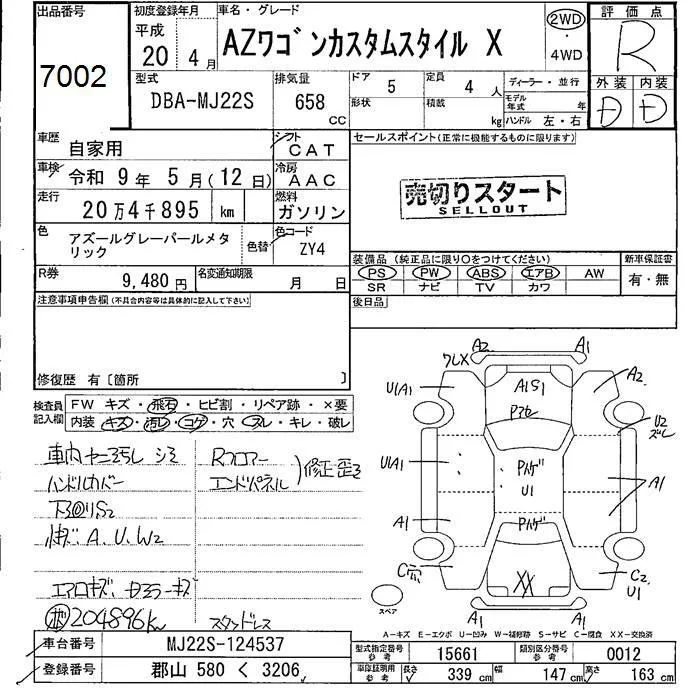 出品番号
7002
初度登録年月
平成
20年 4月
車名・グレード
AZワゴンカスタムスタイル X
2WD
・
4WD
評価点
R
型式
DBA-MJ22S
排気量
658
CC
ドア
5
定員
4人
形状
積載
kg
ディーラー・並行
モデル年式
年
ハンドル 左・右
外装 内装
D D
車歴
自家用
シフト
CAT
車検
令和 9年 5月(12日)
冷房
AAC
走行
20万4千895 km
燃料
ガソリン
色
アズールグレーパールメタリック
色替
色コード
ZY4
R券
9,480円
名変通知期限
月 日
セールスポイント(正常に機能するものに限ります)
売切りスタート
SELLOUT
装備品(純正品に限り○をつけてください)
PS PW ABS エアB AW
SR ナビ TV カワ
新車保証書
有・無
後日品
注意事項申告欄(不具合内容等は具体的に記入して下さい)
修復歴 有〔箇所 〕
検査員記入欄
FW キズ・飛石・ヒビ割・リペア跡・×要
内装 キズ・汚レ・コゲ・穴・スレ・キレ・破レ
車内 ヤニ汚れ シミ
ハンドルカバー
下回りS2
A. U. W2
Rフロアー
エンドパネル
修正歪ミ
204896km
スタッドレス
A2
A1
ワレX
U1(A1)
A1S1
A2
U2
スレ
U1(A1)
U1
A1
A1
C穴
C2
U1
XX
A1
A1
スペア
A-キズ E-エクボ U-凹み W-補修跡 S-サビ C-腐食 XX-交換済
車台番号
MJ22S-124537
登録番号
郡山 580 く 3206
型式指定番号
参考
15661
類別区分番号
参考
0012
車庫証明用
参考
長さ
339 cm
幅
147 cm
高さ
163 cm